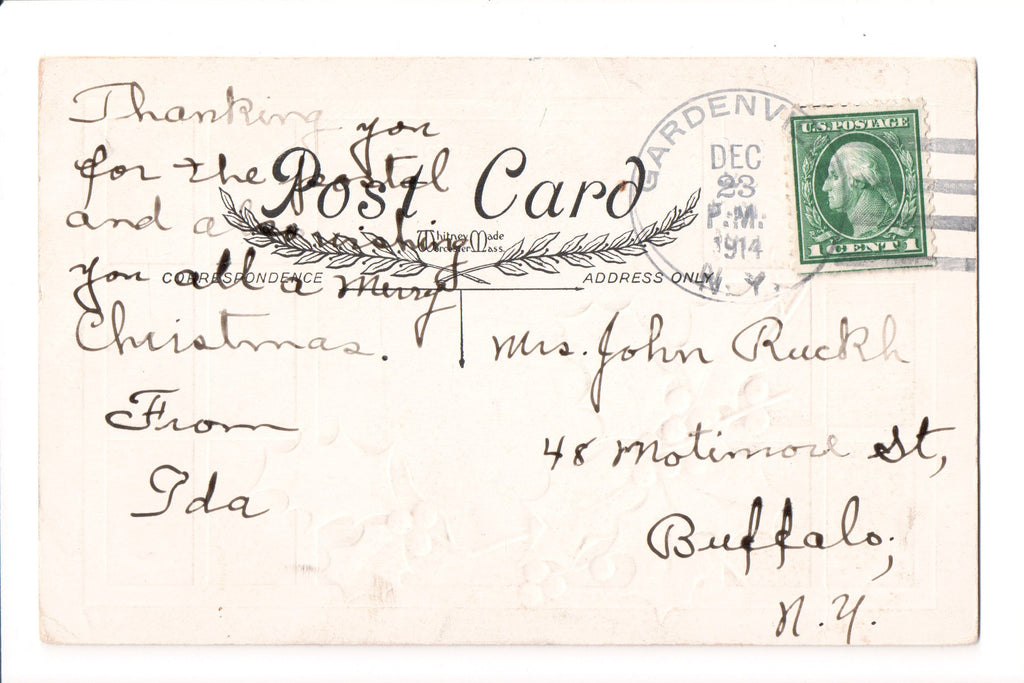 Thanking you
for the postal
and also wishing
you all a Merry
Christmas.
From
Ida
Post Card
Whitney Made
Worcester Mass
CORRESPONDENCE
ADDRESS ONLY
GARDENV
DEC
23
P.M.
1914
N.Y.
U.S. POSTAGE
1 CENT 1
Mrs. John Ruckh
48 Motimore St,
Buffalo,
N.Y.